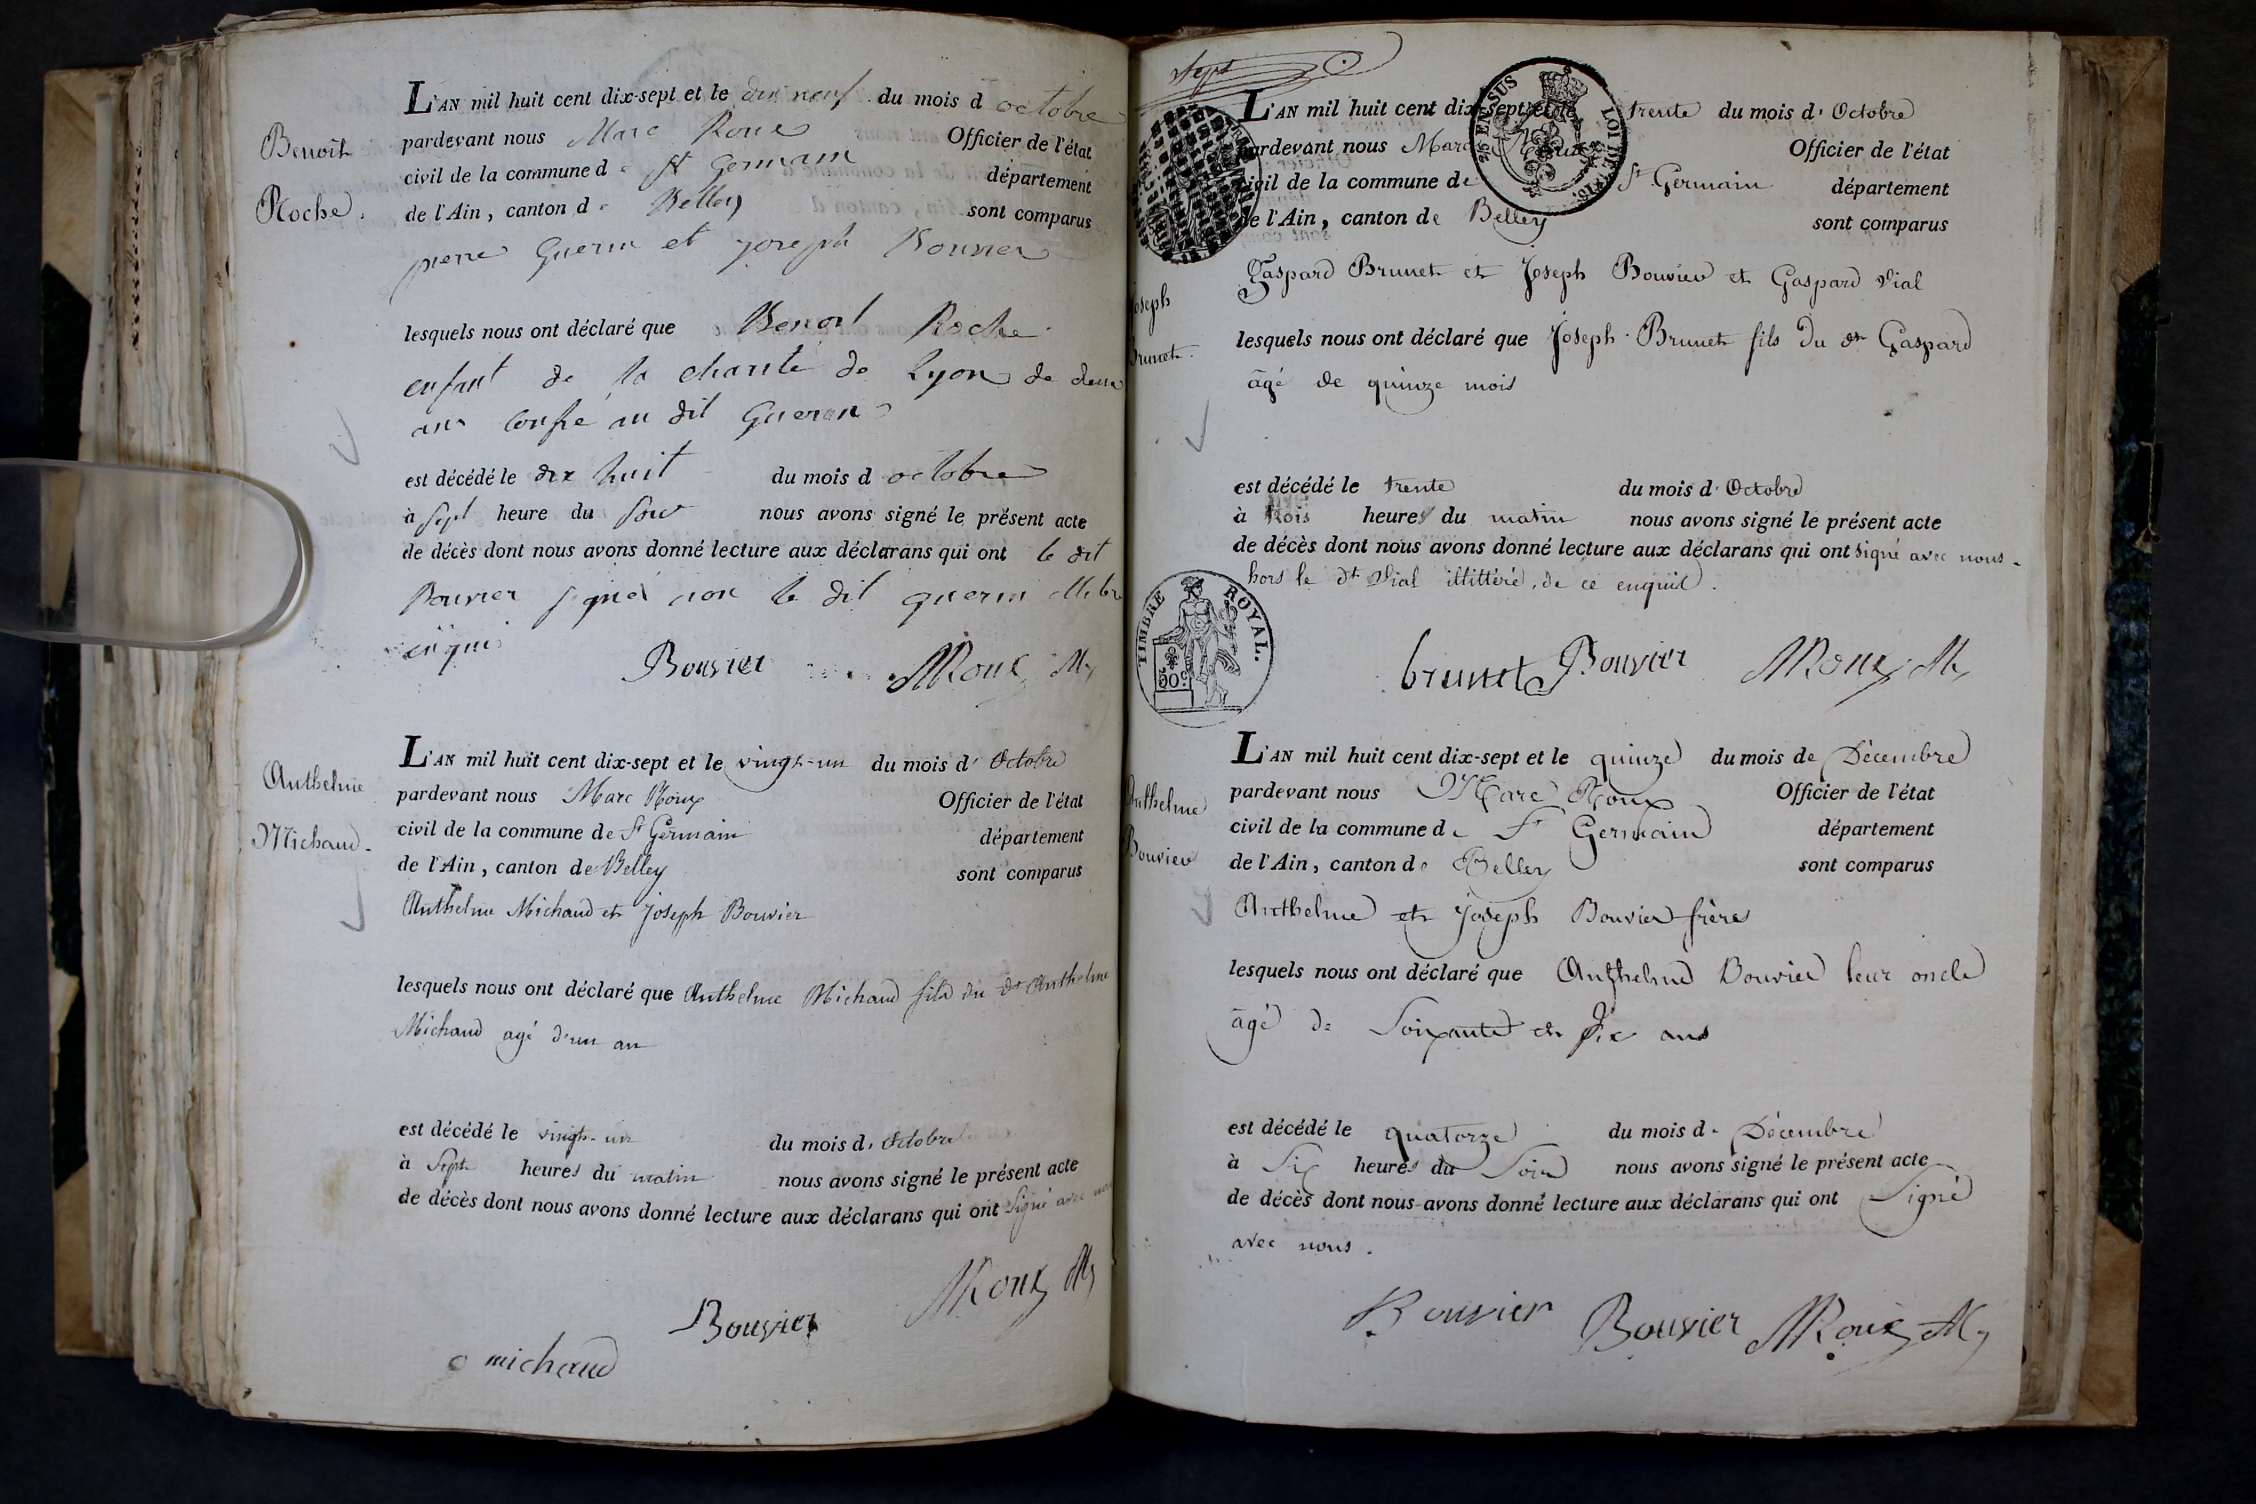 Benoit
Roche.
L'AN mil huit cent dix-sept et le dix neuf du mois d octobre
pardevant nous Marc Roux Officier de l'état
civil de la commune de St Germain département
de l'Ain, canton de Belley sont comparus
pierre Guerin et joseph Bouvier
lesquels nous ont déclaré que Benoit Roche
enfant de la charité de Lyon de deux
ans confié au dit Guerin
est décédé le dix huit du mois d octobre
à sept heure du soir nous avons signé le présent acte
de décès dont nous avons donné lecture aux déclarans qui ont le dit
Bouvier signé non le dit guerin
enquis
Bouvier MRoux
Anthelme
Michaud.
L'AN mil huit cent dix-sept et le vingt-un du mois d' Octobre
pardevant nous Marc Roux Officier de l'état
civil de la commune de St Germain département
de l'Ain, canton de Belley sont comparus
Anthelme Michaud et Joseph Bouvier
lesquels nous ont déclaré que Anthelme Michaud fils du dt Anthelme
Michaud agé d'un an
est décédé le vingt-un du mois d' Octobre
à Sept heures du matin nous avons signé le présent acte
de décès dont nous avons donné lecture aux déclarans qui ont signé avec nous
Bouvier MRoux
michaud
sept
25 EN SUS LOI DE 1816.
Joseph
Brunet.
L'AN mil huit cent dix-sept et le trente du mois d' Octobre
pardevant nous Marc Roux Officier de l'état
civil de la commune de St Germain département
de l'Ain, canton de Belley sont comparus
Gaspard Brunet et Joseph Bouvier et Gaspard Vial
lesquels nous ont déclaré que Joseph Brunet fils du dt Gaspard
âgé de quinze mois
est décédé le trente du mois d' Octobre
à trois heures du matin nous avons signé le présent acte
de décès dont nous avons donné lecture aux déclarans qui ont signé avec nous
hors le dt Vial illittéré, de ce enquis.
TIMBRE ROYAL.
50c
brunet Bouvier MRoux
Anthelme
Bouvier
L'AN mil huit cent dix-sept et le quinze du mois de Décembre
pardevant nous Marc Roux Officier de l'état
civil de la commune de St Germain département
de l'Ain, canton de Belley sont comparus
Anthelme et Joseph Bouvier frères
lesquels nous ont déclaré que Anthelme Bouvier leur oncle
âgé de Soixante et dix ans
est décédé le quatorze du mois de Décembre
à Six heures du Soir nous avons signé le présent acte
de décès dont nous avons donné lecture aux déclarans qui ont Signé
avec nous.
Bouvier Bouvier MRoux